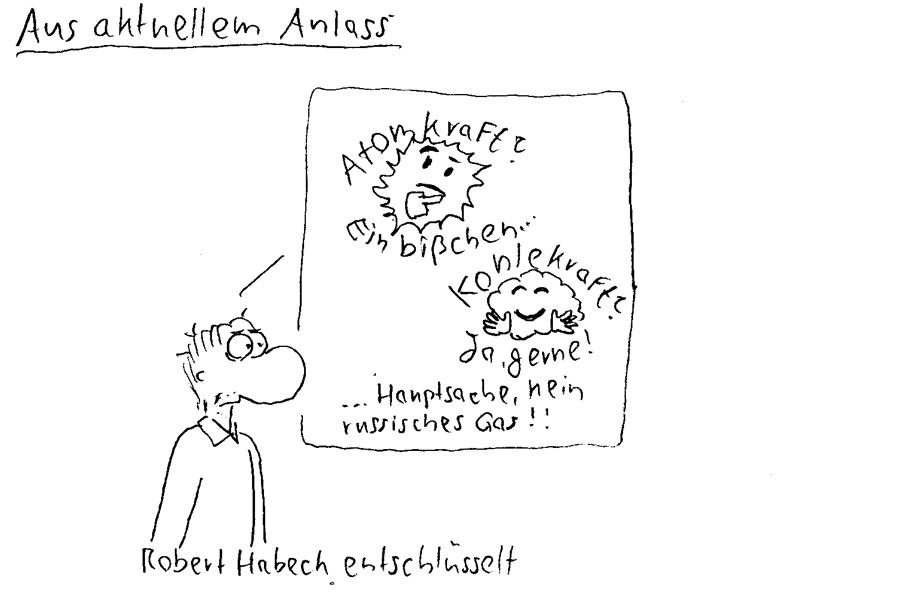 Aus aktuellem Anlass
Atomkraft?
Ein bißchen...
Kohlekraft?
Ja, gerne!
... Hauptsache, kein
russisches Gas!!
Robert Habeck entschlüsselt